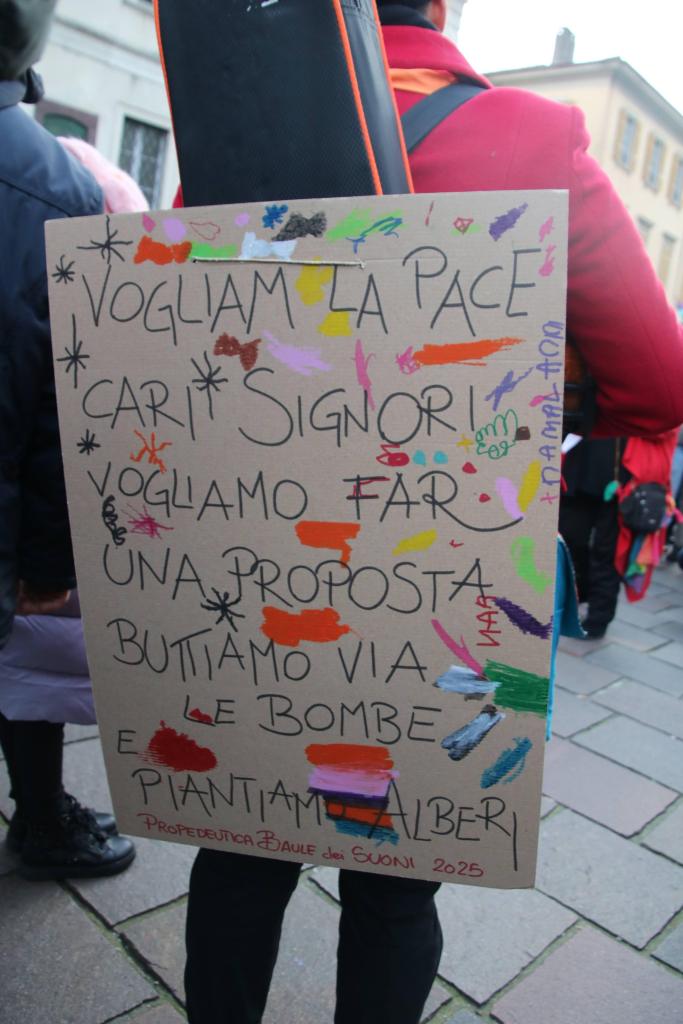 VOGLIAM LA PACE
CARI SIGNORI
VOGLIAMO FAR
UNA PROPOSTA
BUTTIAMO VIA
LE BOMBE
E
PIANTIAMO ALBERI
PROPEDEUTICA BAULE dei SUONI 2025